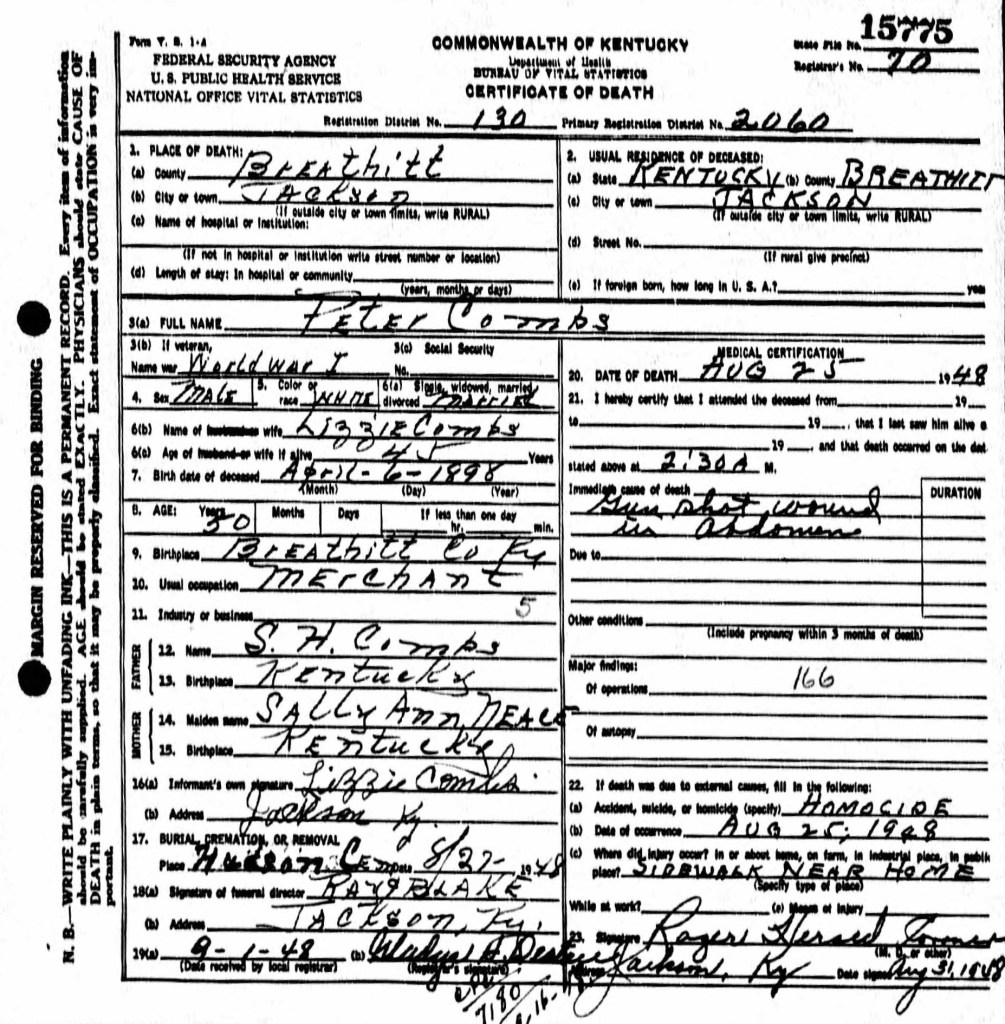 15775
Form V. S. 1-A
FEDERAL SECURITY AGENCY
U. S. PUBLIC HEALTH SERVICE
NATIONAL OFFICE VITAL STATISTICS
COMMONWEALTH OF KENTUCKY
Department of Health
BUREAU OF VITAL STATISTICS
CERTIFICATE OF DEATH
State File No.
Registrar's No. 70
Registration District No. 130 Primary Registration District No. 2060
1. PLACE OF DEATH:
(a) County Breathitt
(b) City or town Jackson
(If outside city or town limits, write RURAL)
(c) Name of hospital or institution:
(If not in hospital or institution write street number or location)
(d) Length of stay: In hospital or community
(years, months or days)
2. USUAL RESIDENCE OF DECEASED:
(a) State KENTUCKY (b) County BREATHITT
(c) City or town JACKSON
(If outside city or town limits, write RURAL)
(d) Street No.
(If rural give precinct)
(e) If foreign born, how long in U. S. A.? yea
3(a) FULL NAME Peter Combs
3(b) If veteran, 3(c) Social Security
Name war World War I No.
4. Sex MALE 5. Color or race WHITE 6(a) Single, widowed, married, divorced MARRIED
6(b) Name of husband or wife Lizzie Combs
6(c) Age of husband or wife if alive 45 Years
7. Birth date of deceased April-6-1898
(Month) (Day) (Year)
8. AGE: Years 50 Months Days If less than one day
hr. min.
9. Birthplace Breathitt Co Ky
10. Usual occupation Merchant
5
11. Industry or business
FATHER
12. Name S. H. Combs
13. Birthplace Kentucky
MOTHER
14. Maiden name Sally Ann Neace
15. Birthplace Kentucky
16(a) Informant's own signature Lizzie Combs
(b) Address Jackson Ky.
17. BURIAL, CREMATION, OR REMOVAL
Place Hudson Cem Date 8/27- 1948
18(a) Signature of funeral director RAY BLAKE
(b) Address Jackson, Ky.
19(a) 9-1-48 (b) Gladys
(Date received by local registrar) (Registrar's signature)
MEDICAL CERTIFICATION
20. DATE OF DEATH AUG 25 1948
21. I hereby certify that I attended the deceased from 19
to 19 , that I last saw him alive o
19 , and that death occurred on the dat
stated above at 2:30A M.
Immediate cause of death
Gun shot wound
in Abdomen
DURATION
Due to
Other conditions
(Include pregnancy within 3 months of death)
Major findings:
Of operations 166
Of autopsy
22. If death was due to external causes, fill in the following:
(a) Accident, suicide, or homicide (specify) HOMOCIDE
(b) Date of occurrence AUG 25, 1948
(c) Where did injury occur? In or about home, on farm, in industrial place, in public
place? SIDEWALK NEAR HOME
(Specify type of place)
While at work? (e) Means of Injury
23. Signature Roger
(M. D. or other)
Address Jackson, Ky Date signed Aug 31, 1948
7180
MARGIN RESERVED FOR BINDING
N. B.—WRITE PLAINLY WITH UNFADING INK—THIS IS A PERMANENT RECORD. Every item of information
should be carefully supplied. AGE should be stated EXACTLY. PHYSICIANS should state CAUSE OF
DEATH in plain terms, so that it may be properly classified. Exact statement of OCCUPATION is very im-
portant.